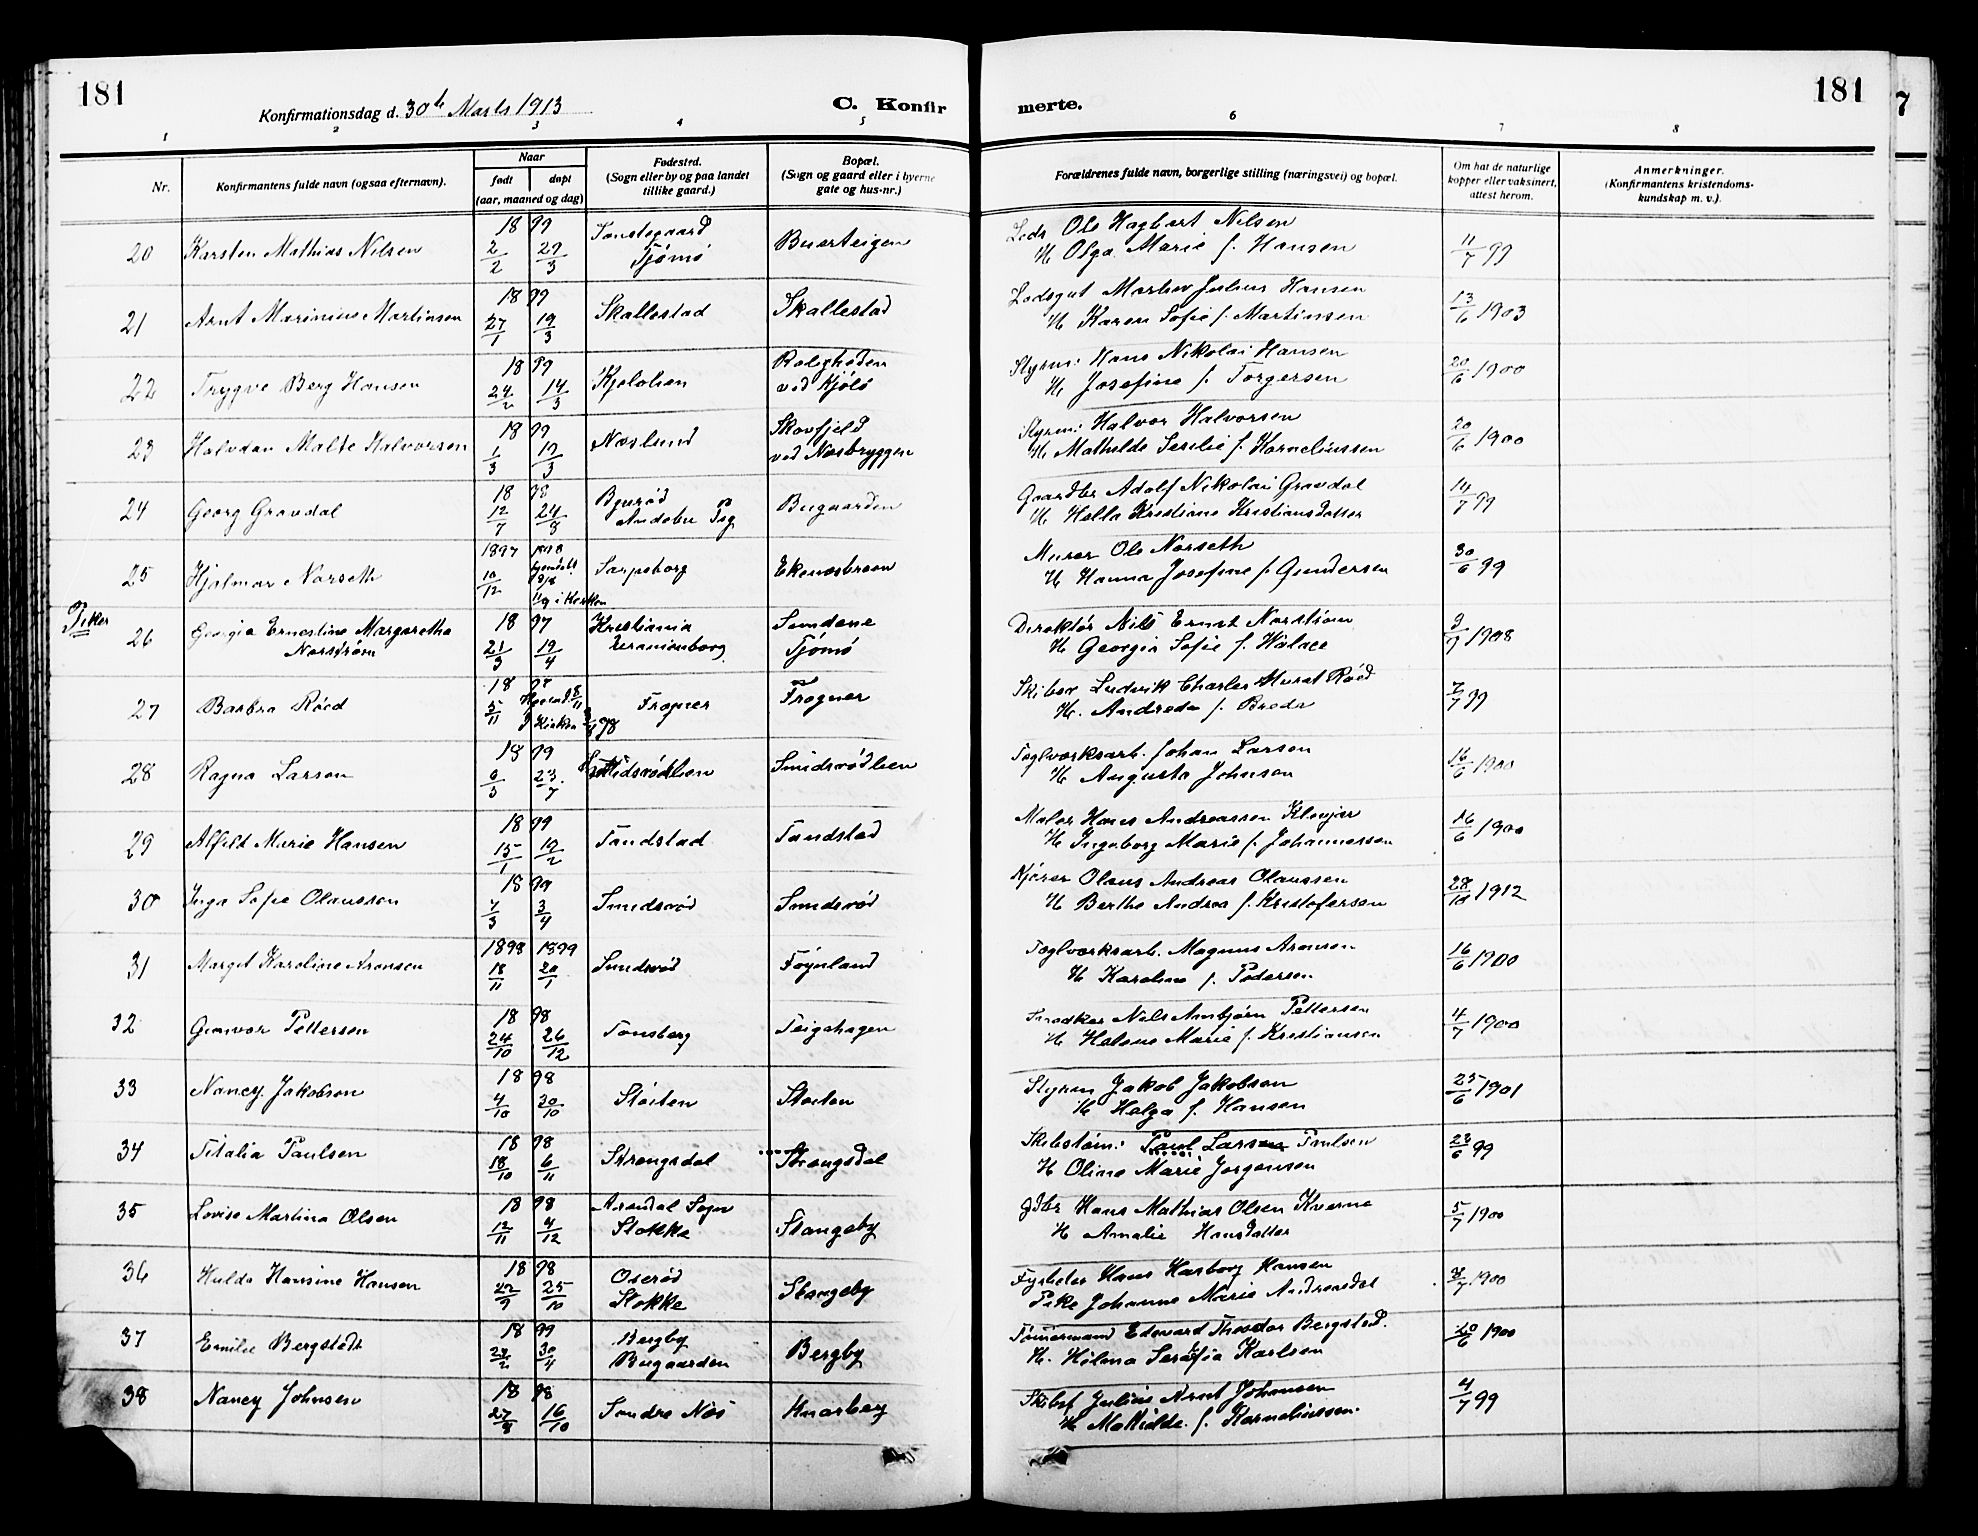 181
Konfirmationsdag d. 30te Marts 1913
C. Konfirmerte.
181
7
1 2 3 4 5 6 7 8
Nr.
Konfirmantens fulde navn (ogsaa efternavn).
Naar
født døpt
(aar, maaned og dag)
Fødested.
(Sogn eller by og paa landet
tillike gaard.)
Bopæl.
(Sogn og gaard eller i byerne
gate og hus-nr.)
Forældrenes fulde navn, borgerlige stilling (næringsvei) og bopæl.
Om hat de naturlige
kopper eller vaksinert,
attest herom.
Anmerkninger.
(Konfirmantens kristendoms-
kundskap m. v.).
20 Karsten Mathias Nilsen 18 99 2/2 27/3
Tjømø
Buerteigen
Lods Ole Hagbart Nilsen
H. Olga Marie f. Hansen
11/7 99
21 Arnt Marinius Martinsen 18 99 27/1 19/3
Skallestad
Skallestad
Lodsgut Julius Hansen
H. Karen Sofie f. Martinsen
13/6 1903
22 Trygve Berg Hansen 18 99 24/2 14/3
Roligheden
ved Kjølø
Styrm: Hans Nikolai Hansen
H. Josefine f. Torgersen
20/6 1900
23 Halvdan Malte Halvorsen 18 99 1/3 19/3
Næslund
Skovfjeld
ved Næsbryggen
Styrm: Halvor Halvorsen
H. Mathilde Serilie f. Korneliussen
20/6 1900
24 Georg Gravdal 18 98 12/7 24/8
Andebu Pg
Bugaarden
Gaardbr Adolf Nikolai Gravdal
H. Hella Kristiane Kristiansdatter
14/7 99
25 Hjalmar Norseth 1897 10/12 1898
hjemdøbt
i Kirken
Sarpsborg
Ekenesbraaen
Murer Ole Norseth
H. Hanna Josefine f. Gundersen
30/6 99
Piker
26 Georgia Ernestine Margaretha
Norstrøm
18 97 21/3 19/4
Kristiania
Uranienborg
Sundene
Tjømø
Direktør Nils Ernst Norstrøm
H. Georgia Sofie f. Walace
9/9 1908
27 Barbra Röed 18 98 5/11
Kirken 98
Frogner
Frogner
Skibsr Ludvik Charles Murat Röed
H. Andrea f. Bredr
7/7 99
28 Ragna Larsen 18 99 23/7
Smidsrødlien
Smidsrødlien
Teglverksarb. Johan Larsen
H. Augusta Johnsen
16/6 1900
29 Alfild Marie Hansen 18 99 15/1 19/2
Tandstad
Tandstad
Maler Hans Andreassen Klevjer
H. Ingeborg Marie f. Johannessen
16/6 1900
30 Inga Sofie Olaussen 18 99 7/3 3/4
Smidsrød
Smidsrød
Kjører Olaus Andreas Olaussen
H. Berthe Andrea f. Kristofersen
28/10 1912
31 Margit Karoline Aronsen 1898 1899 18/11 20/1
Smidsrød
Føynland
Teglverksarb. Magnus Aronsen
H. Karoline f. Pedersen
16/6 1900
32 Gunvor Pettersen 18 98 24/10 26/12
Tønsberg
Teigehagen
Snedker Nils Arnbjørn Pettersen
H. Helene Marie f. Kristiansen
4/7 1900
33 Nancy Jakobsen 18 98 4/10 30/10
Støiten
Støiten
Styrm Jakob Jakobsen
H. Helga f. Hansen
25/6 1901
34 Titalia Paulsen 18 98 18/10 6/11
Strengsdal
Strengsdal
Skibstøm: Paul Larsen Paulsen
H Oline Marie Jørgensen
23/6 99
35 Lovise Martina Olsen 18 98 12/11 4/12
Arendal Sogn
Stokke
Stangeby
Gdbr Hans Mathias Olsen Kverne
H. Amalie Hansdatter
5/7 1900
36 Hulda Hansine Hansen 18 98 22/9 25/10
Oserød
Stokke
Stangeby
Fyrbøter Hans Harborg Hansen
Pike Johanne Marie Andreasdat
1900
37 Emilie Bergstedt 18 99 24/2 30/4
Bergby
Bugaarden
Bergby
Tømmermand Edevard Theodor Bergsted.
H. Hilma Serafia Karlsen
20/6 1900
38 Nancy Johnsen 18 98 27/8 16/10
Søndre Næs
Knarberg
Skibsf Julius Arnt Johansen
H. Mathilde f. Korneliussen
4/7 99